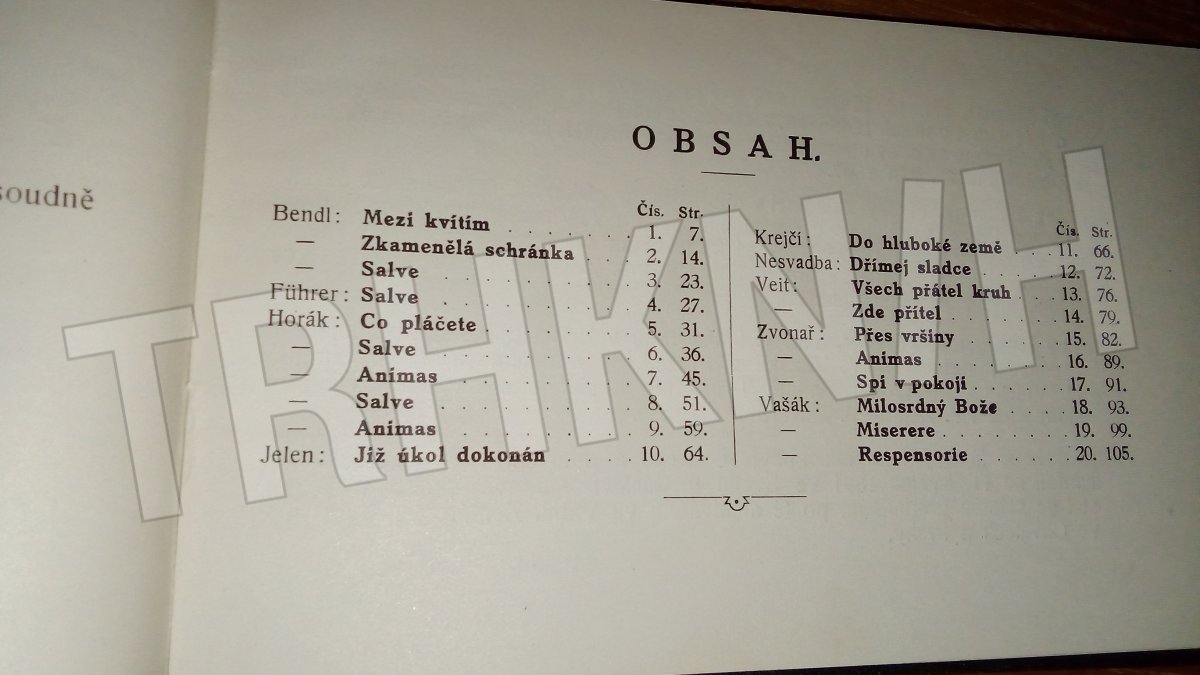 soudně
OBSAH.
Čís. Str.
Bendl: Mezi kvítím . . . . . . . 1. 7.
— Zkamenělá schránka . . . 2. 14.
— Salve . . . . . . . . . 3. 23.
Führer: Salve . . . . . . . . . 4. 27.
Horák: Co pláčete . . . . . . . 5. 31.
— Salve . . . . . . . . . 6. 36.
— Animas . . . . . . . . 7. 45.
— Salve . . . . . . . . . 8. 51.
— Animas . . . . . . . . 9. 59.
Jelen: Již úkol dokonán . . . . 10. 64.
Čís. Str.
Krejčí: Do hluboké země . . . 11. 66.
Nesvadba: Dřímej sladce . . . . 12. 72.
Veit: Všech přátel kruh . . . 13. 76.
— Zde přítel . . . . . . . 14. 79.
Zvonař: Přes vršiny . . . . . . 15. 82.
— Animas . . . . . . . . 16. 89.
— Spi v pokoji . . . . . . 17. 91.
Vašák: Milosrdný Bože . . . . 18. 93.
— Miserere . . . . . . . . 19. 99.
— Respensorie . . . . . . 20. 105.
TRHKNIH